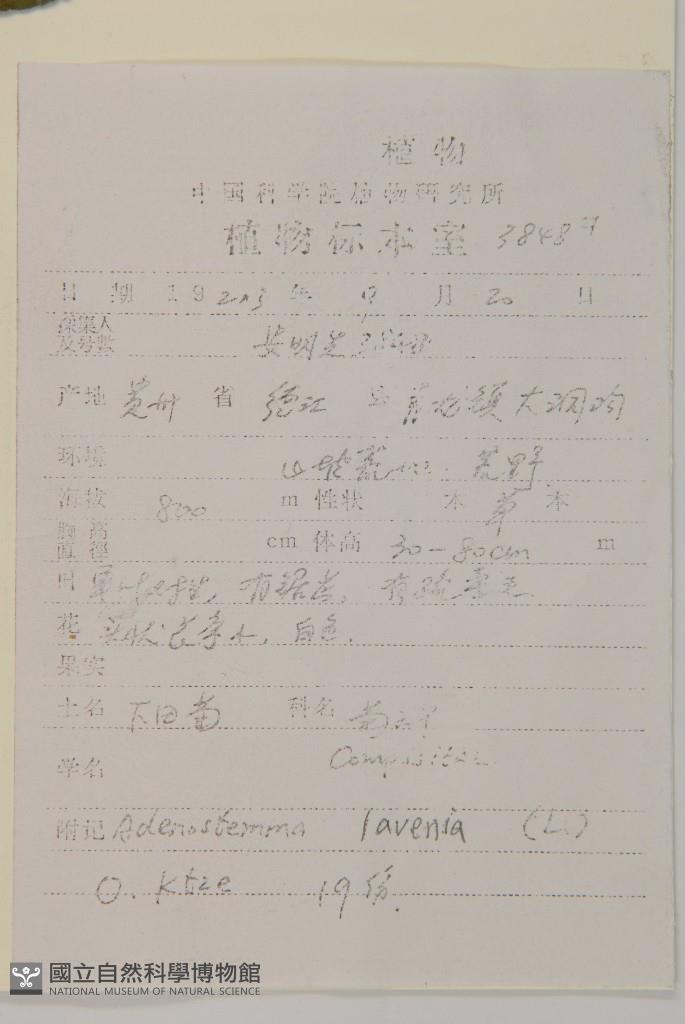 植物
中国科学院植物研究所
植物标本室 3848
日期 19 2003 年 月 20 日
採集人
及号數 安明先
产地 贵州 省 德江 县 镇大洞
环境 荒野
海拔 800 m 性状 本 草 本
胸高
直徑 cm 体高 30-80cm m
叶 单叶对生, 有锯齿, 有
花 白色.
果实
土名 下田菊 科名 菊
Compositae
学名
附记 Adenostemma lavenia (L.)
O. Ktze 19份.
國立自然科學博物館
NATIONAL MUSEUM OF NATURAL SCIENCE